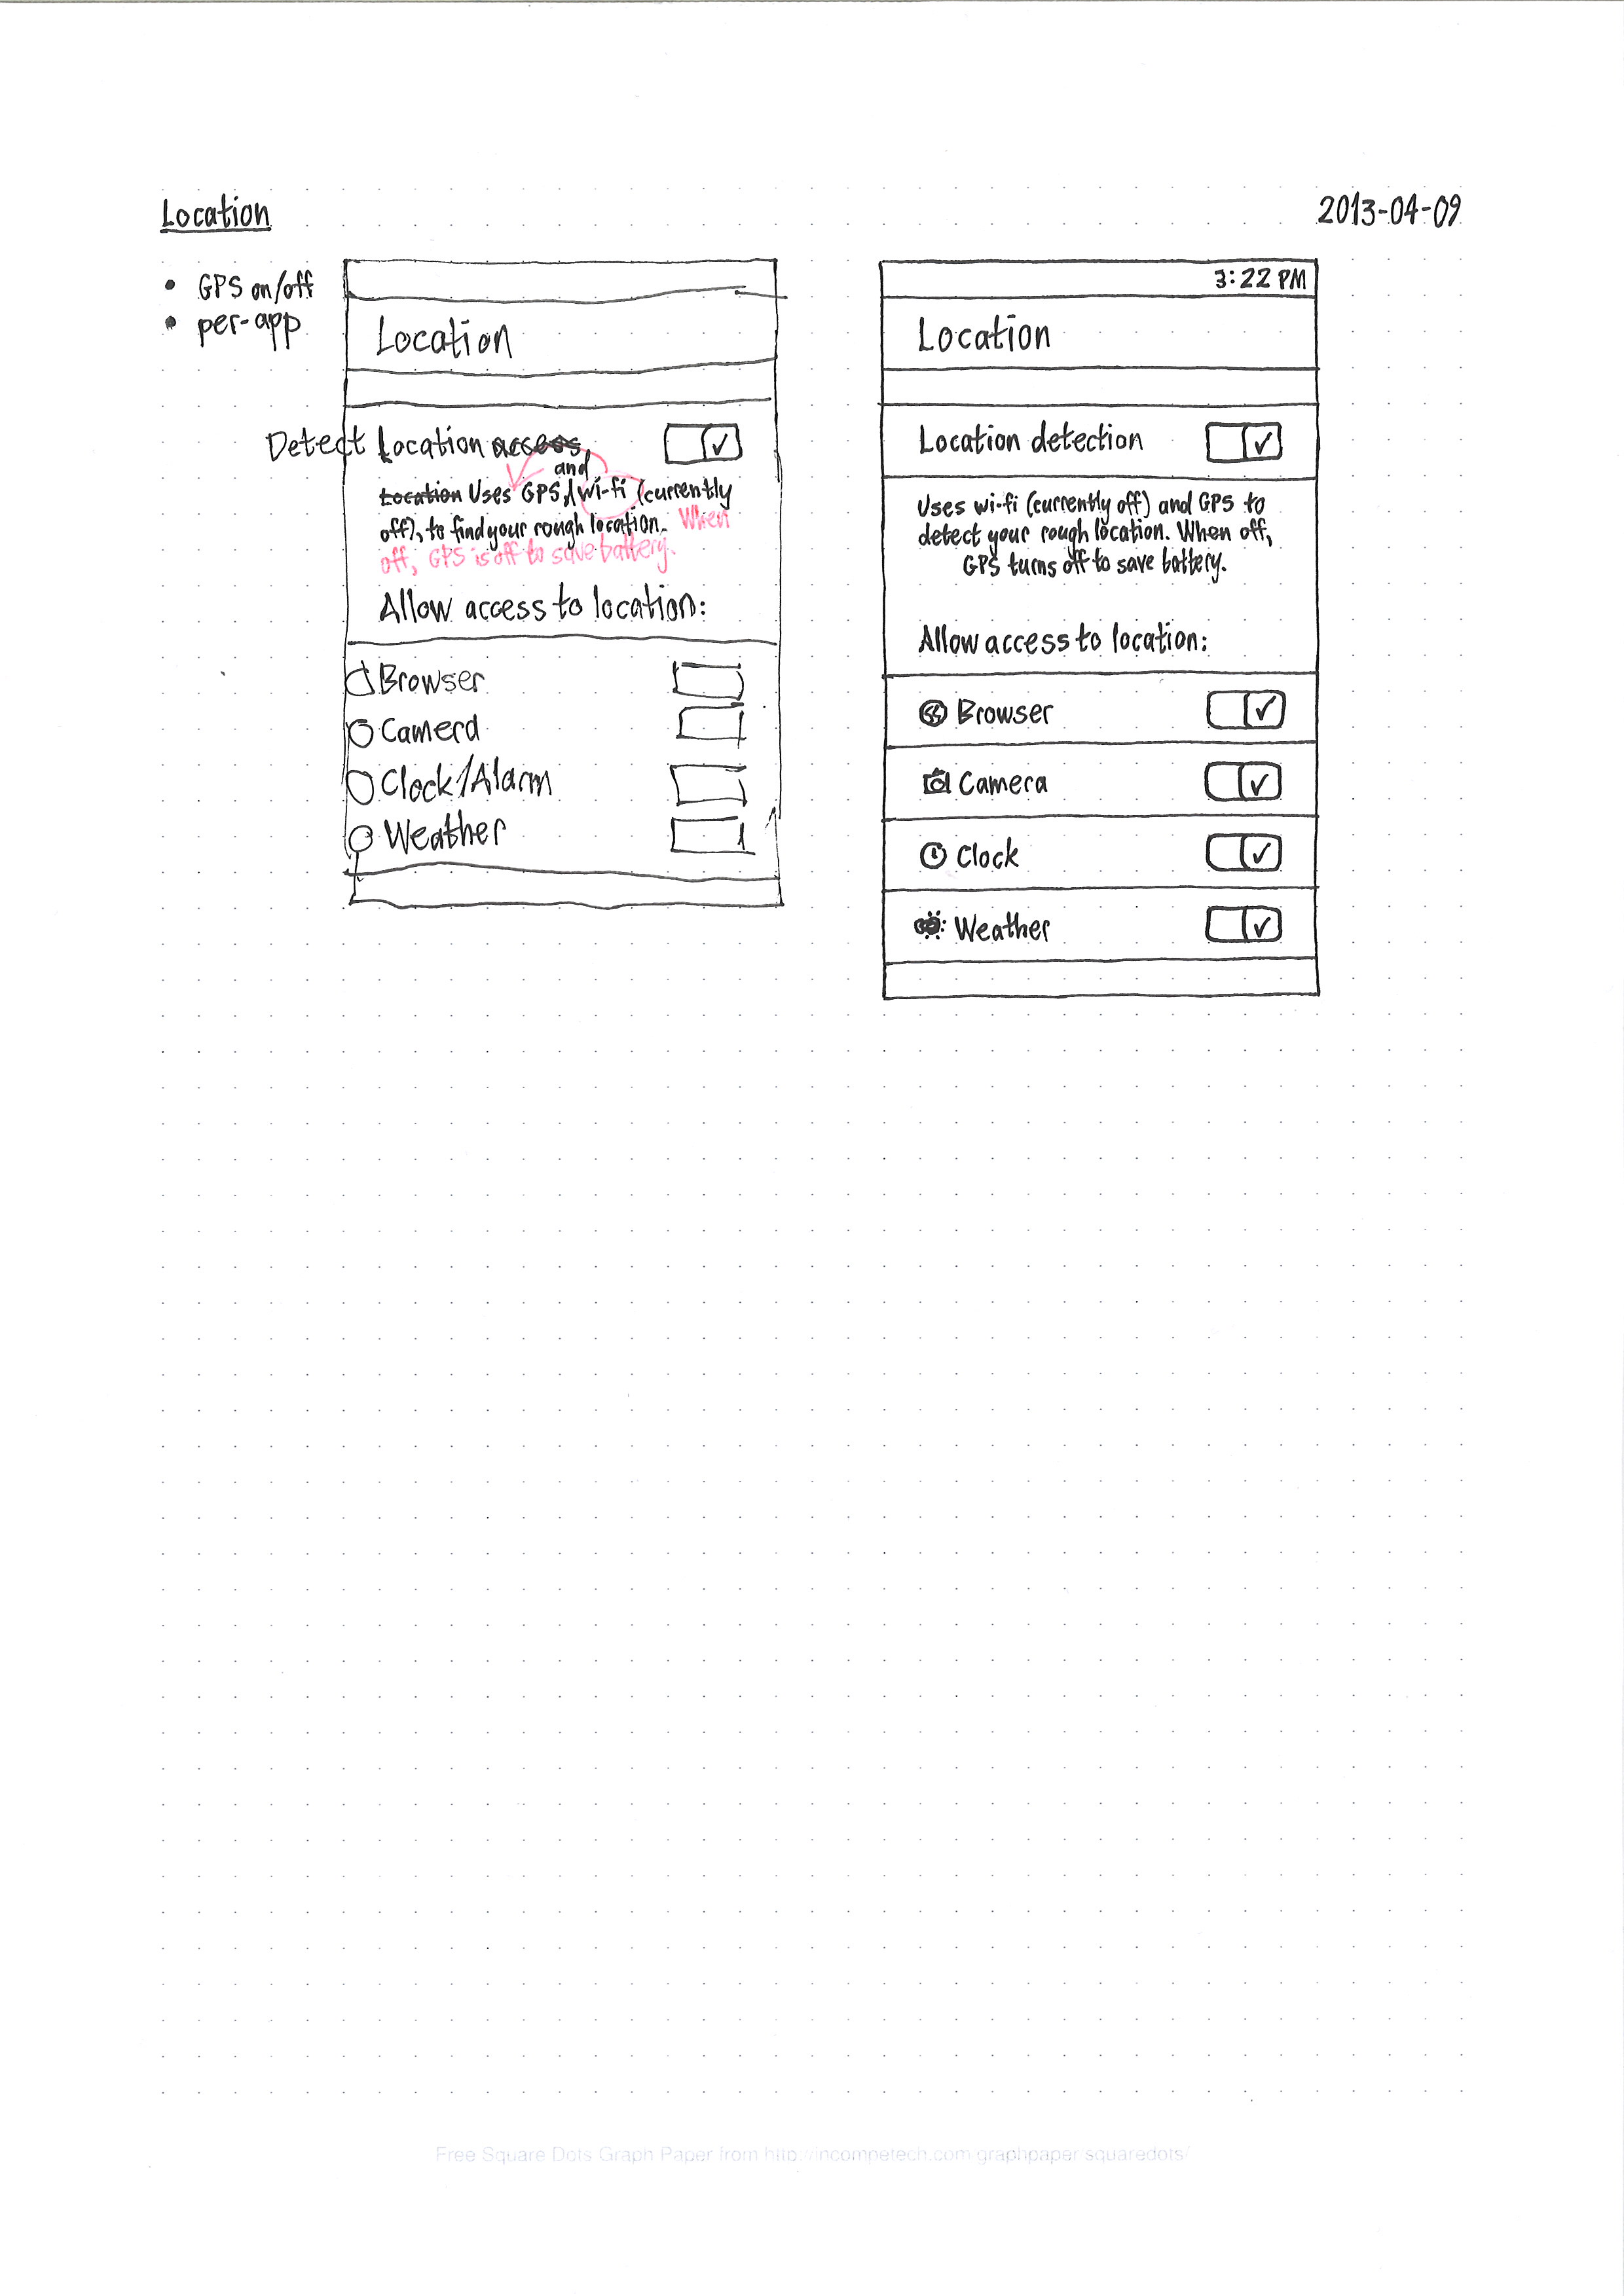 Location
2013-04-09
• GPS on/off
• per-app
Location
Detect Location access
and
Location Uses GPS, wi-fi (currently
off), to find your rough location. When
off, GPS is off to save battery.
Allow access to location:
Browser
Camera
Clock/Alarm
Weather
3:22 PM
Location
Location detection
Uses wi-fi (currently off) and GPS to
detect your rough location. When off,
GPS turns off to save battery.
Allow access to location:
Browser
Camera
Clock
Weather
Free Square Dots Graph Paper from http://incompetech.com/graphpaper/squaredots/